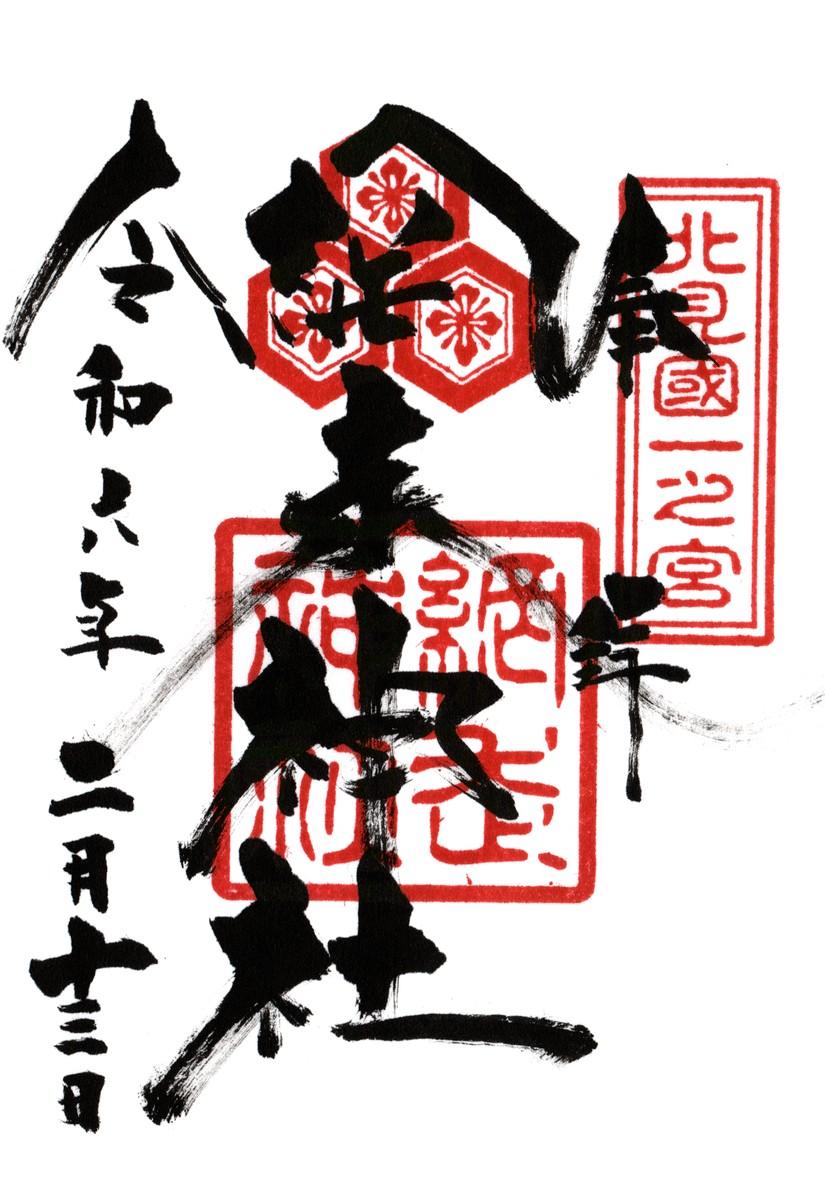 北見國一之宮
奉拝
網走神社
網走神社
令和六年二月十三日